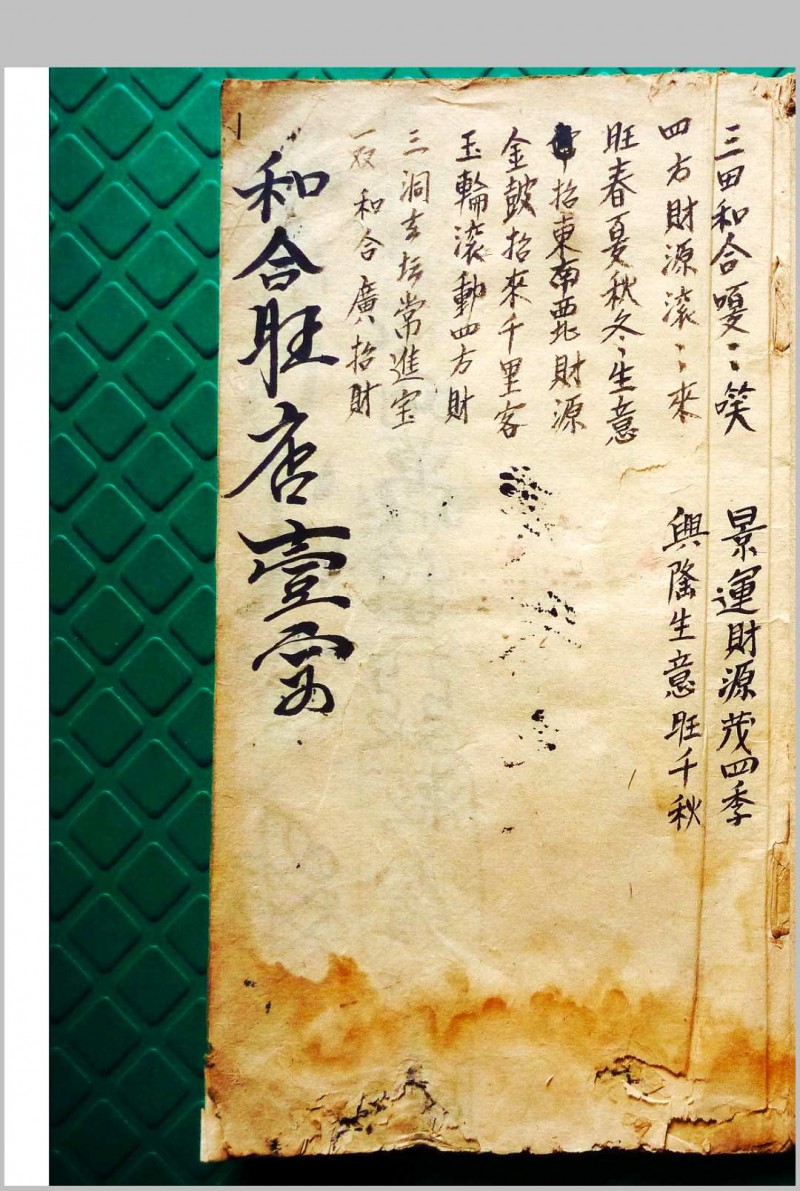 三田和合嗄〻笑
景運財源茂四季
四方財源滚〻來
興隆生意旺千秋
旺春夏秋冬〻生意
招東南西北財源
金鼓招來千里客
玉輪滚動四方財
三洞玄坛常進宝
和合廣招財
和合旺店壹